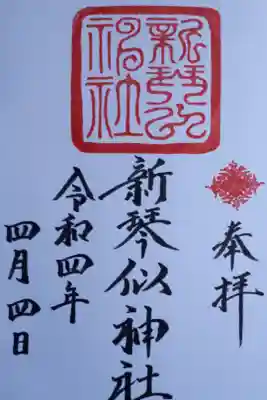 奉拝
新琴似神社
令和四年
四月四日
新琴似神社